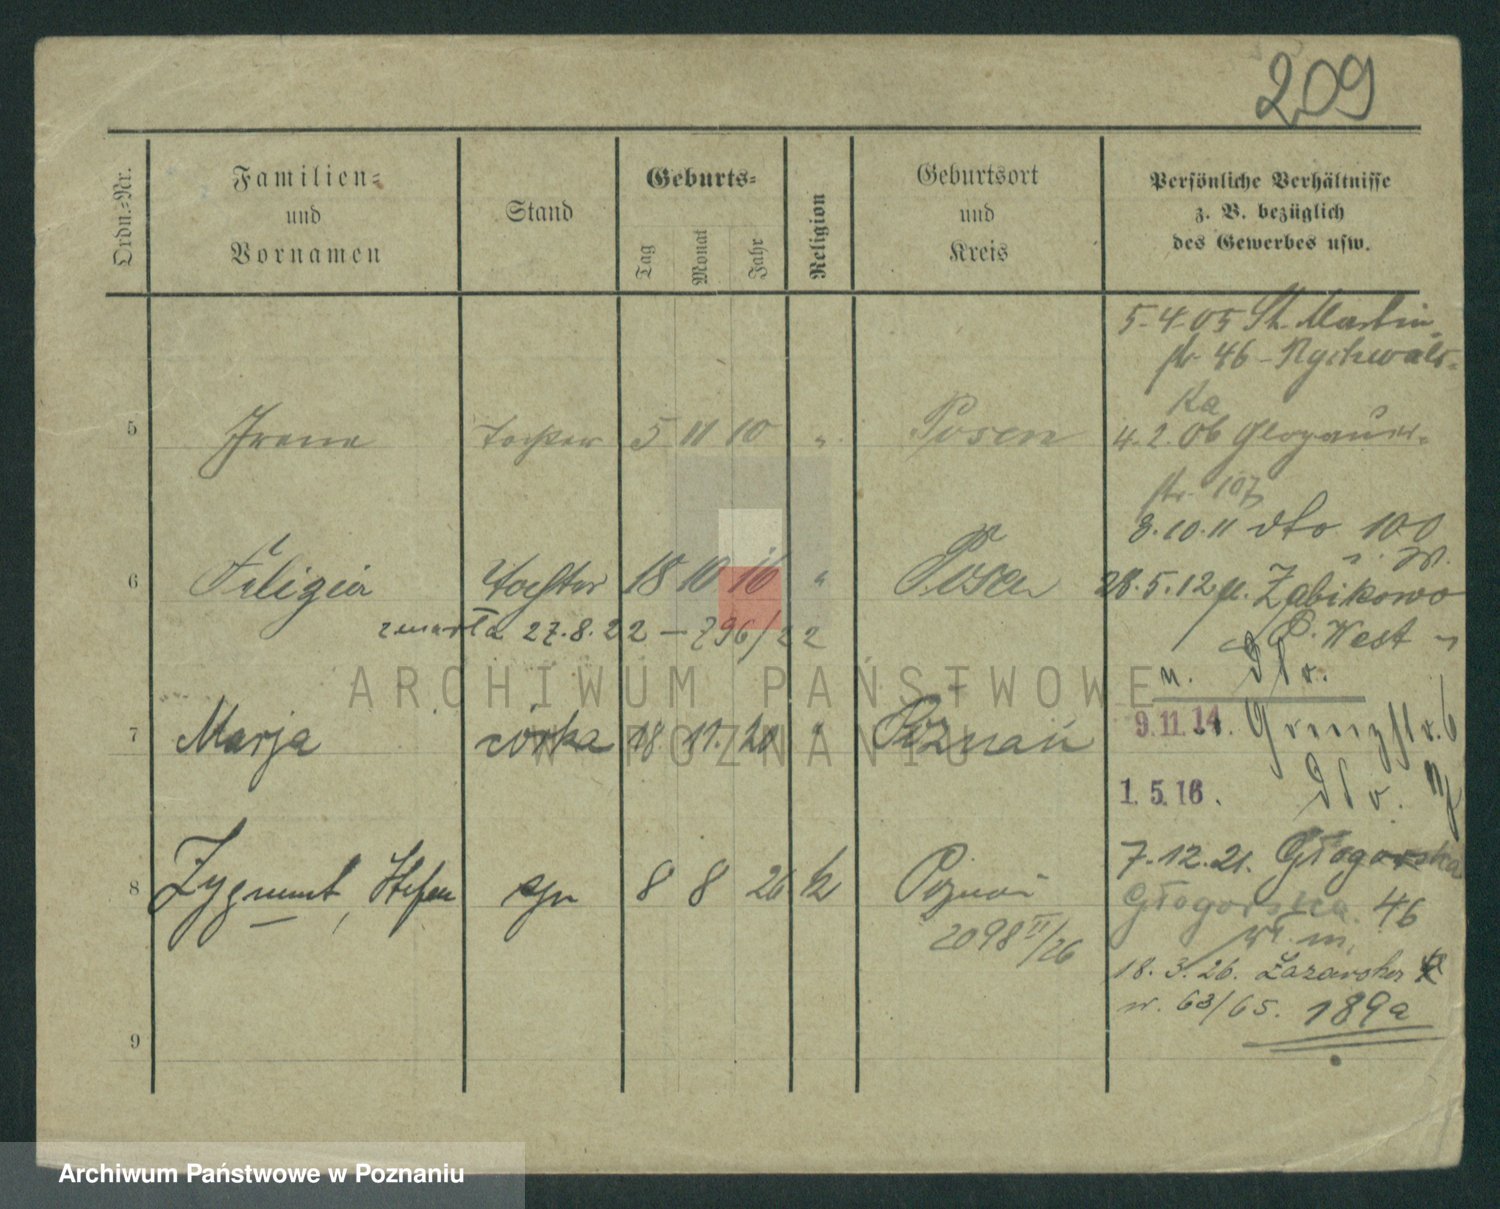 209
Ordn.-Nr.
Familien-
und
Vornamen
Stand
Geburts-
Tag
Monat
Jahr
Religion
Geburtsort
und
Kreis
Persönliche Verhältnisse
z. B. bezüglich
des Gewerbes usw.
5 Irene Tochter 5 11 10 " Posen
6 Felizia Tochter 18 10 16 " Posen
zmarła 27.8.22 – 796/22
7 Marja córka 18 11. 20 " Poznań
8 Zygmunt, Stefan syn 8 8 26 k Poznań
2098 II/26
9
5.4.05 St. Martin
str 46 – Rychwals-
ka
4.2.06 Glogauer-
str. 107
3.10.11 dto 100
28.5.12 Żabikowo
P. West
n. dto.
9.11.14. Grenzstr. 6
1.5.16. dto.
7.12.21. Głogowska
Głogowska 46
18.3.26. Łazarska
63/65. 189a
ARCHIWUM PAŃSTWOWE
W POZNANIU
Archiwum Państwowe w Poznaniu